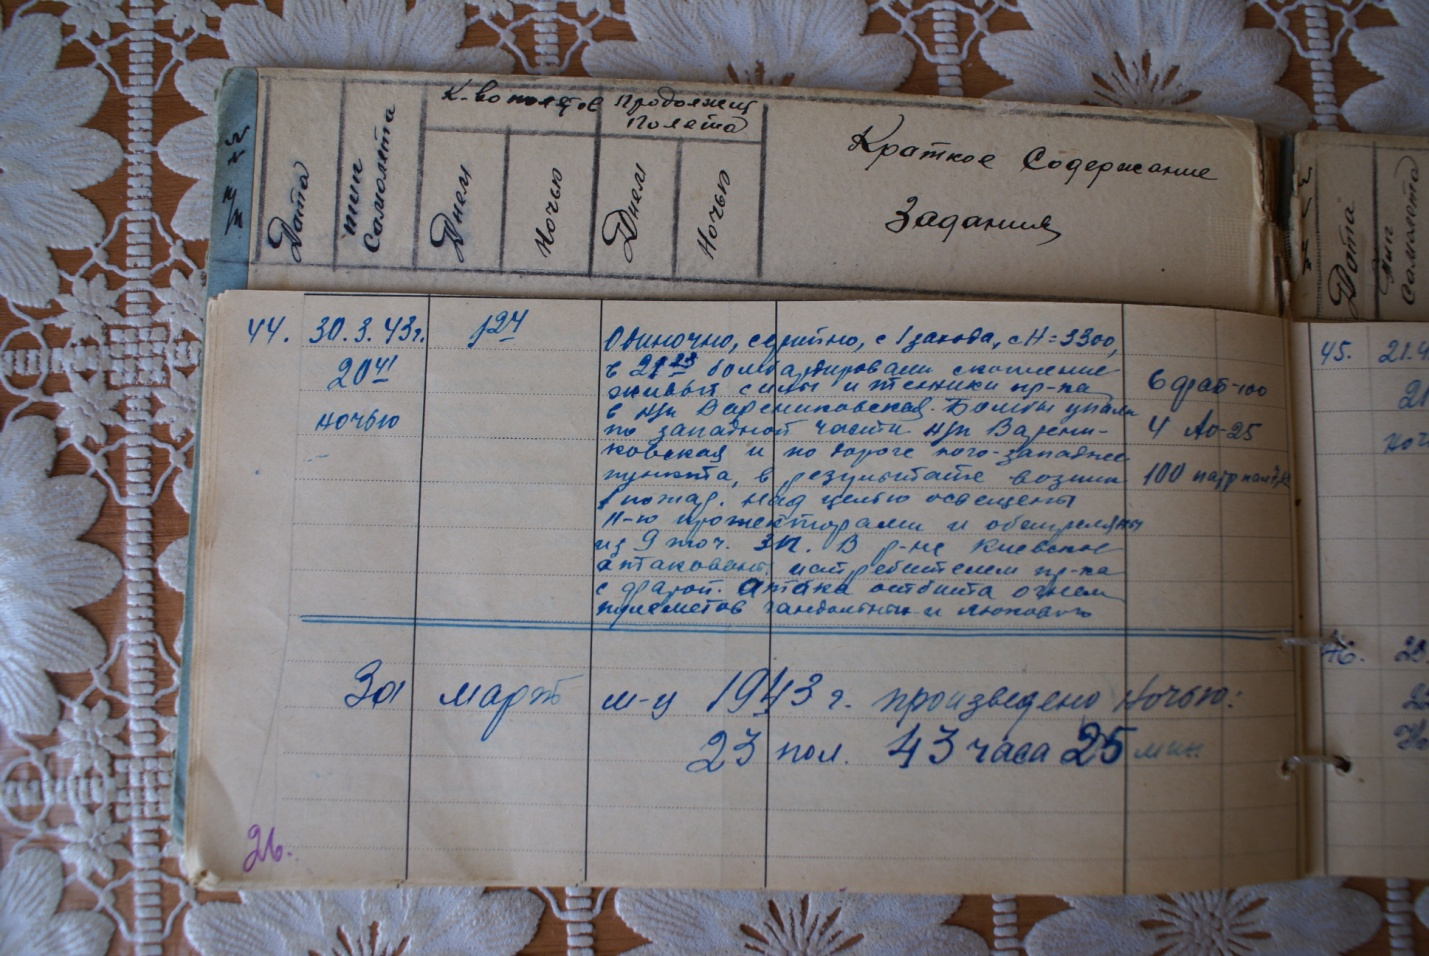 №№ п/п
Дата
тип самолета
К-во полетов
Продолжит полета
Днем
Ночью
Днем
Ночью
Краткое Содержание
Задания
44. 30.3.43г. 1 24
20 41
ночью
Одиночно, серийно, с 1 захода, с Н=3300,
в 21 28 бомбардировали скопление
живый силы и техники пр-ка
в н/п Варениковская. Бомбы упали
по западной части н/п Варени-
ковская и по дороге юго-западнее
пункта, в результате возник
1 пожар. Над целью освещены
11-ю прожекторами и обстреляны
из 9 точ. ЗП. В р-не Киевское
атакован истребителем пр-ка
с фарой. Атака отбита огнем
пулеметов и люкового
6 фаб-100
4 Ао-25
100 патр
За март м-ц 1943 г. произведено Ночью:
23 пол. 43 часа 25 мин.
26.
Дата
Тип самолета
45. 21.4
21
ноч
46.